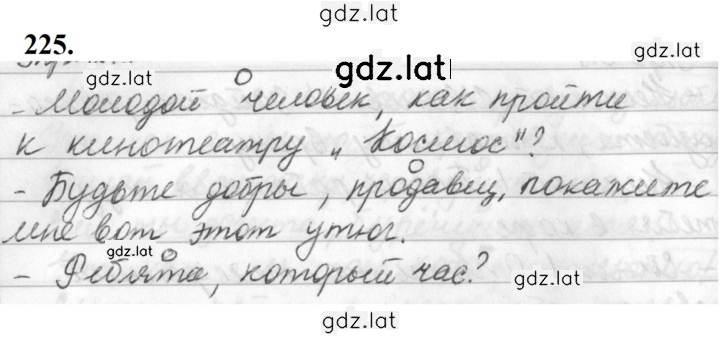 gdz.lat
225.
gdz.lat
gdz.lat
gdz.lat
- Молодой человек, как пройти
к кинотеатру „Космос"?
- Будьте добры, продавец, покажите
мне вот этот утюг.
gdz.lat
- Ребята, который час?
gdz.lat
gdz.lat